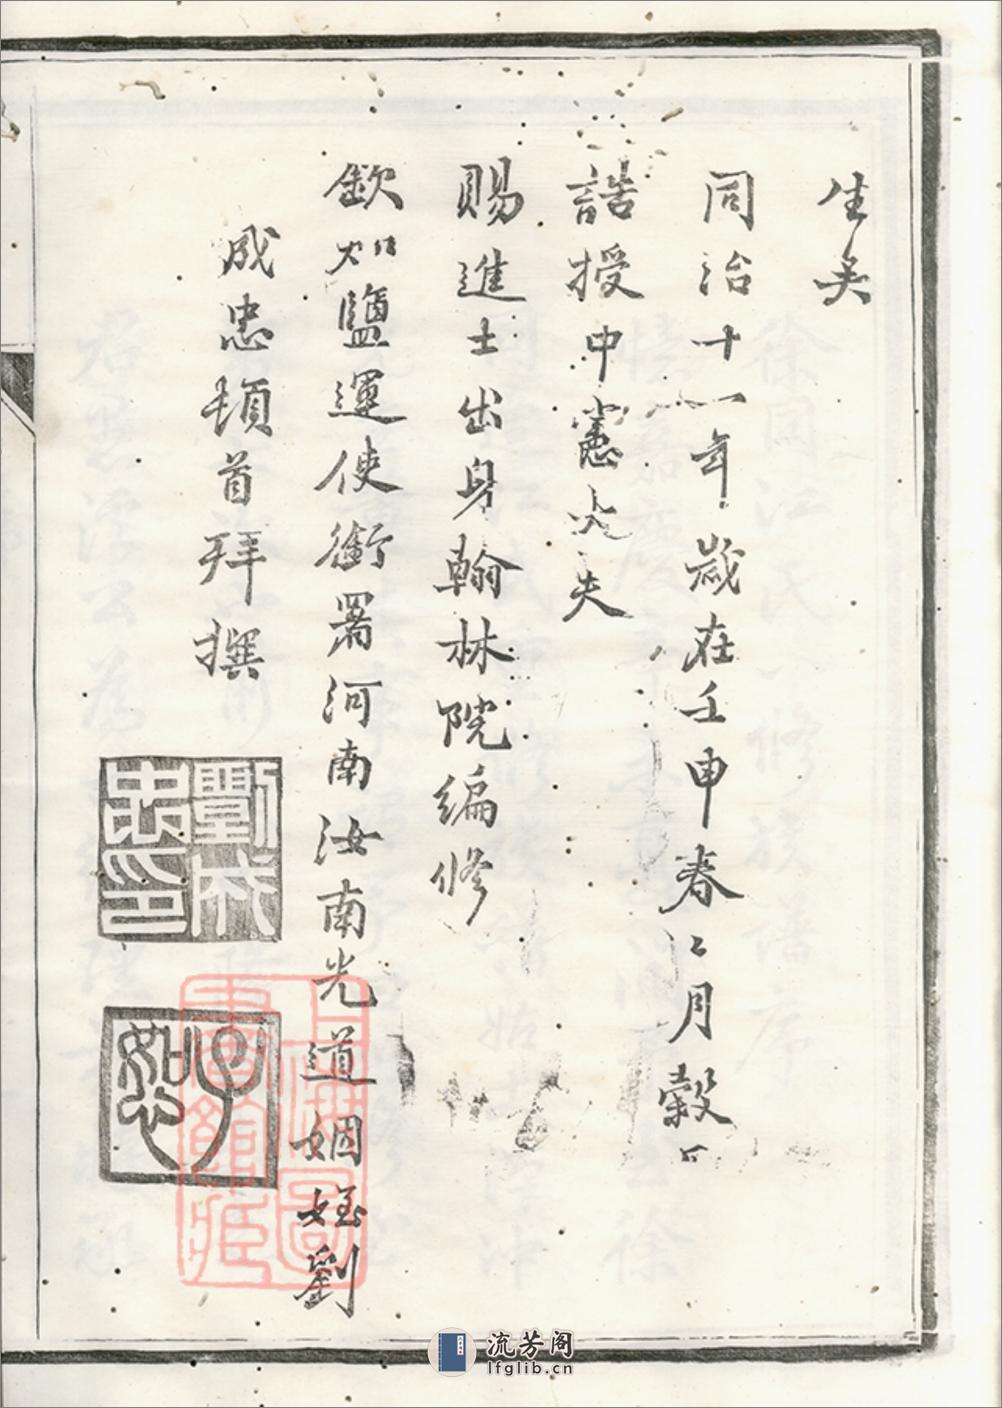 生矣
同治十一年歲在壬申春二月穀日
誥授中憲大夫
賜進士出身翰林院編修
欽加鹽運使銜署河南汝南光道姻姪劉
成忠頓首拜撰
劉成忠印
子恕
上海圖書館藏
流芳阁
lfglib.cn